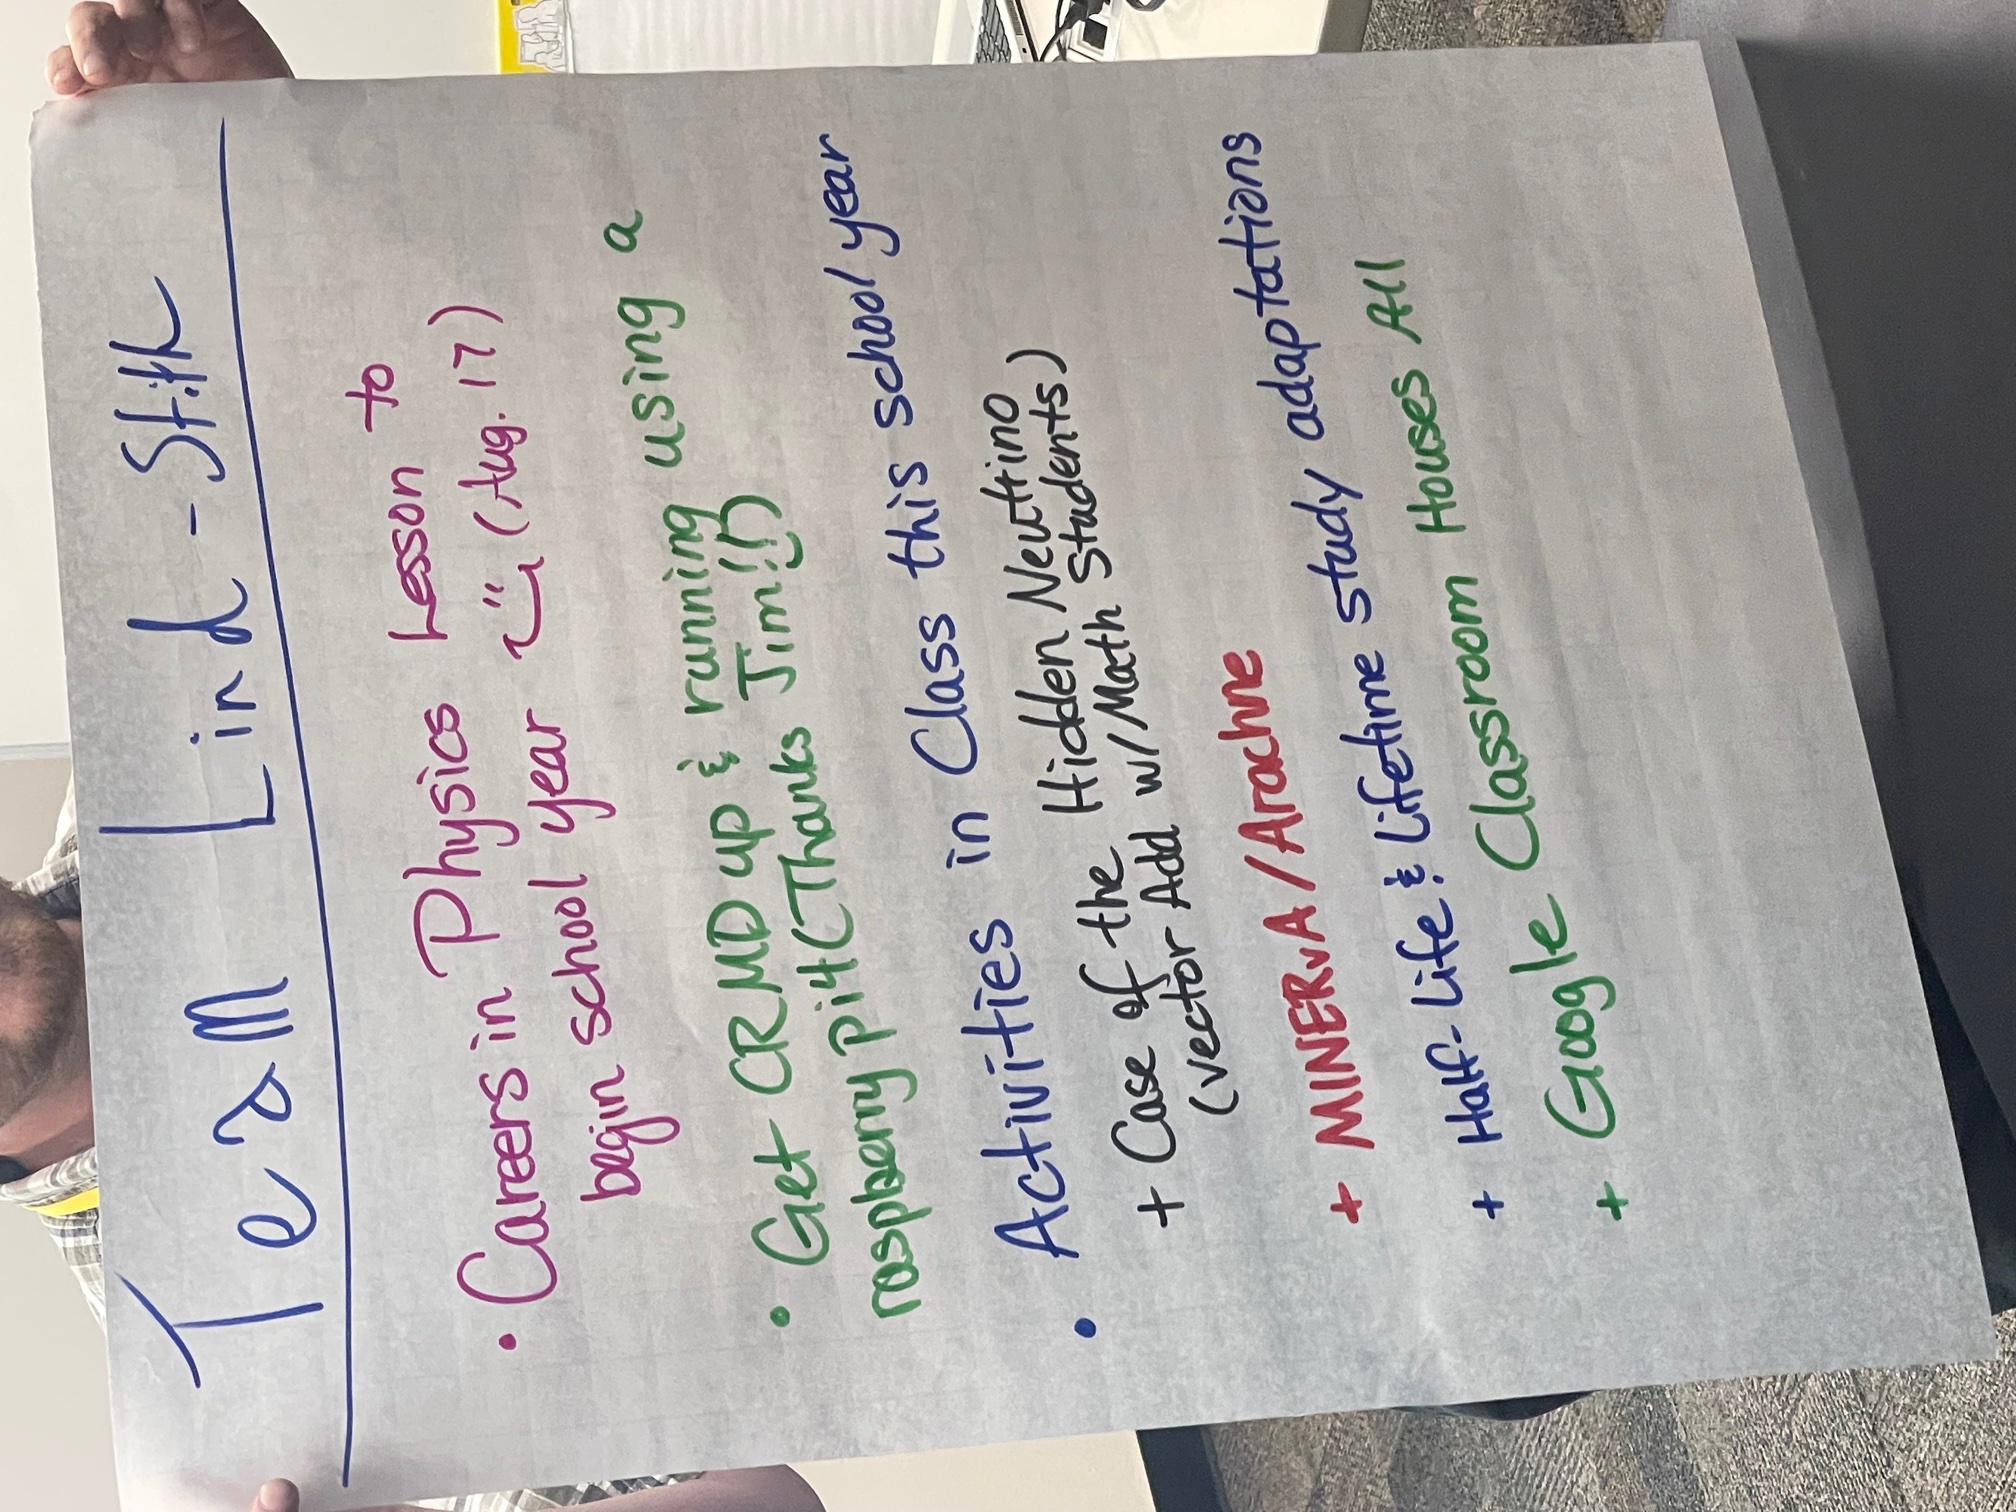 Team Lind-Stith
• Careers in Physics Lesson to
begin school year (Aug. 17)
• Get CRMD up & running using a
raspberry Pi 4 (Thanks Jim!!)
• Activities in Class this school year
+ Case of the Hidden Neutrino
(vector Add w/Math Students)
+ MINERνA/Arachne
+ Half-Life & Lifetime study adaptations
+ Google Classroom Houses All